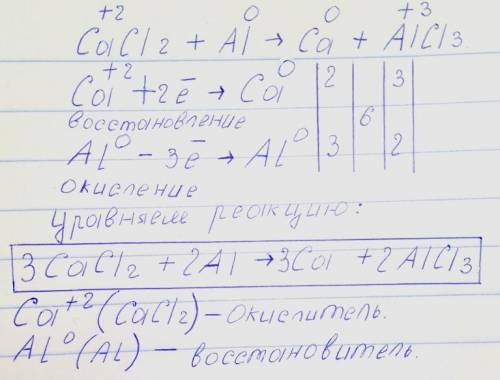 +2 0 0 +3
CaCl2 + Al → Ca + AlCl3
Ca+2 + 2ē → Ca0 | 2 | | 3 |
восстановление 6
Al0 - 3ē → Al0 | 3 | | 2 |
окисление
Уравняем реакцию:
3CaCl2 + 2Al → 3Ca + 2AlCl3
Ca+2 (CaCl2) – окислитель.
Al0 (Al) — восстановитель.